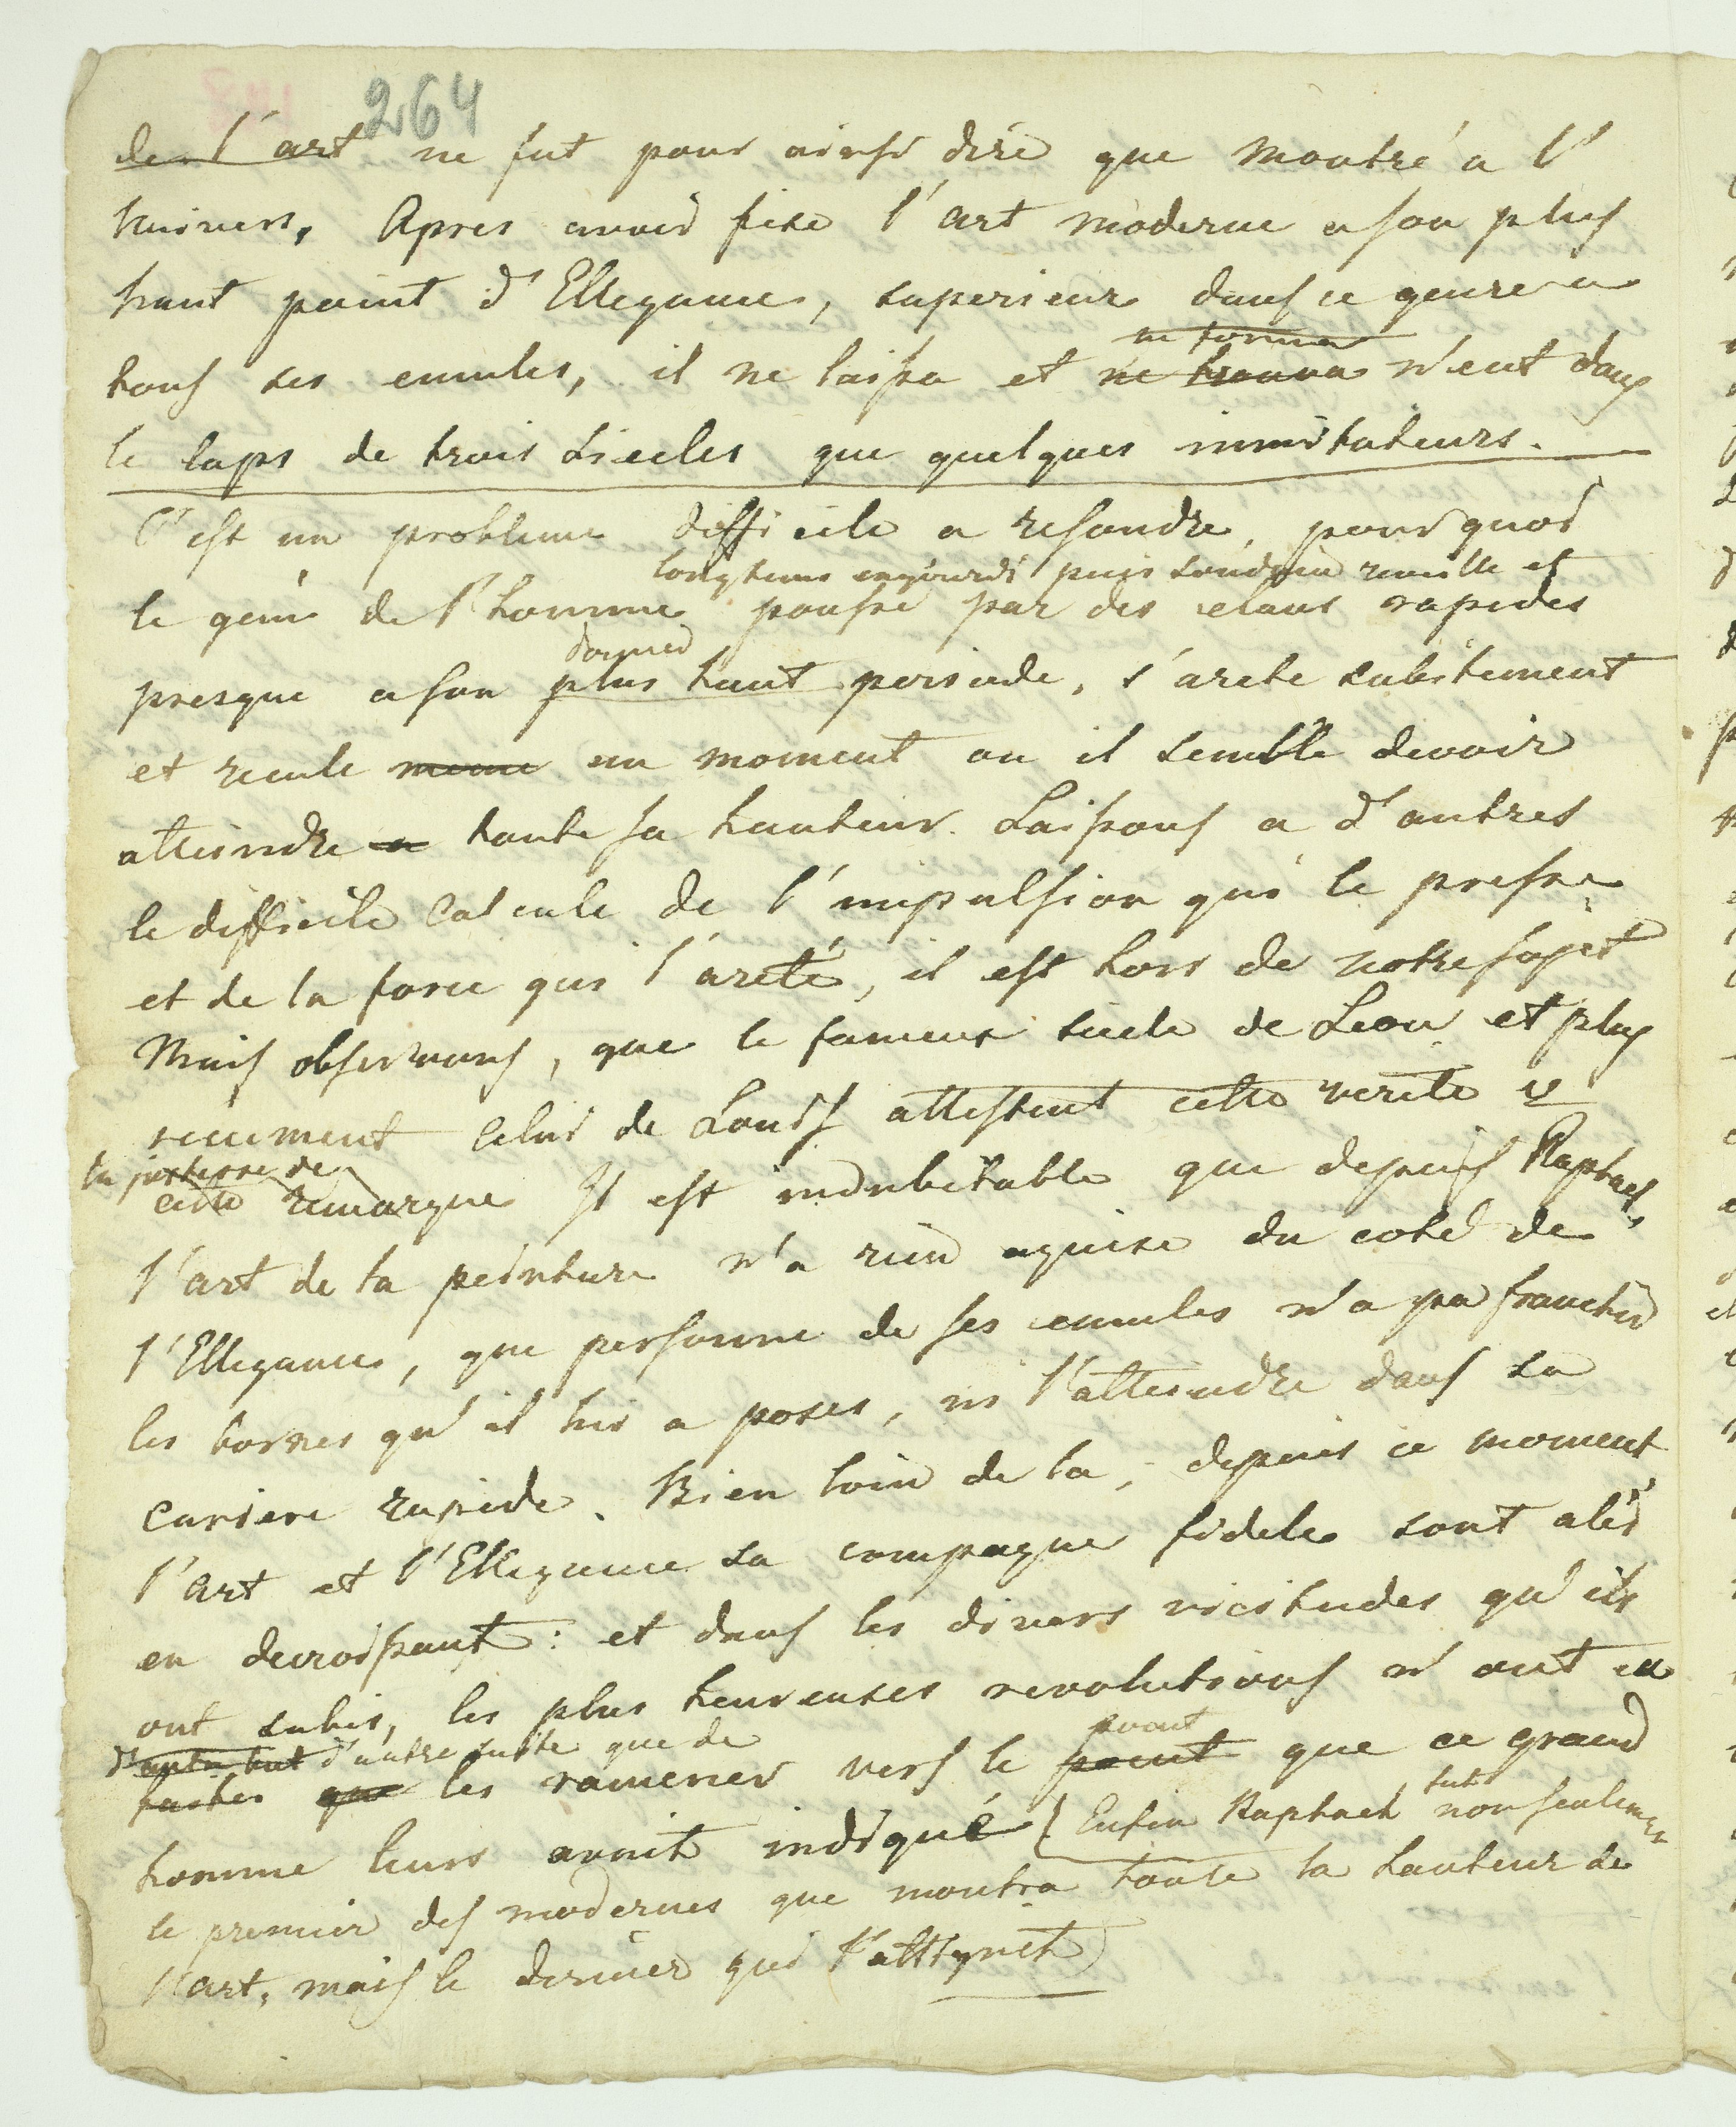 264
de l'art ne fut pour ainsi dire que montré a l'
hunivers, Apres avoir fixe l'art moderne a son plus
haut point d'Ellegance, superieur dans ce genre a
tous ses emules, il ne laissa et ne trouva n'eut dans
le laps de trois siecles que quelques immitateurs.
C'est un probleme difficile a resoudre, pourquoi
longtems engourdi puis soudain reveille et
le genie de l'homme poussé par des elans rapides
dernier
presque a son plus haut periode, s'arete subitement
et recule meme au moment ou il semble devoir
atteindre a toute sa hauteur. Laissons a d'autres
le difficile calcule de l'impulsion qui le presse
et de la force qui l'areté, il est hors de notre sujet
Mais observons, que le fameux siecle de Leon et plus
recement celui de Louis attestent cette verité
la justesse de
cette remarque Il est indubitable que depuis Raphael,
l'art de la peinture n'a rien aquise du coté de
l'Ellegance, que personne de ses emules n'a pu franchir
les bornes qu'il lui a poses, ni l'atteindre dans sa
cariere rapide. Bien loin de la, depuis ce moment,
l'art et l'Ellegance sa compagne fidele sont alés
en decroissant: et dans les divers vicitudes qu'ils
ont subis, les plus heureuses revolutions n'ont eu
d'autre but d'autre suite que de
que les ramener vers le point que ce grand
homme leurs avait indiqué Enfin Raphael fut non seulement
le premier des modernes que montra toute la hauteur de
l'art, mais le dernier qui l'attignit